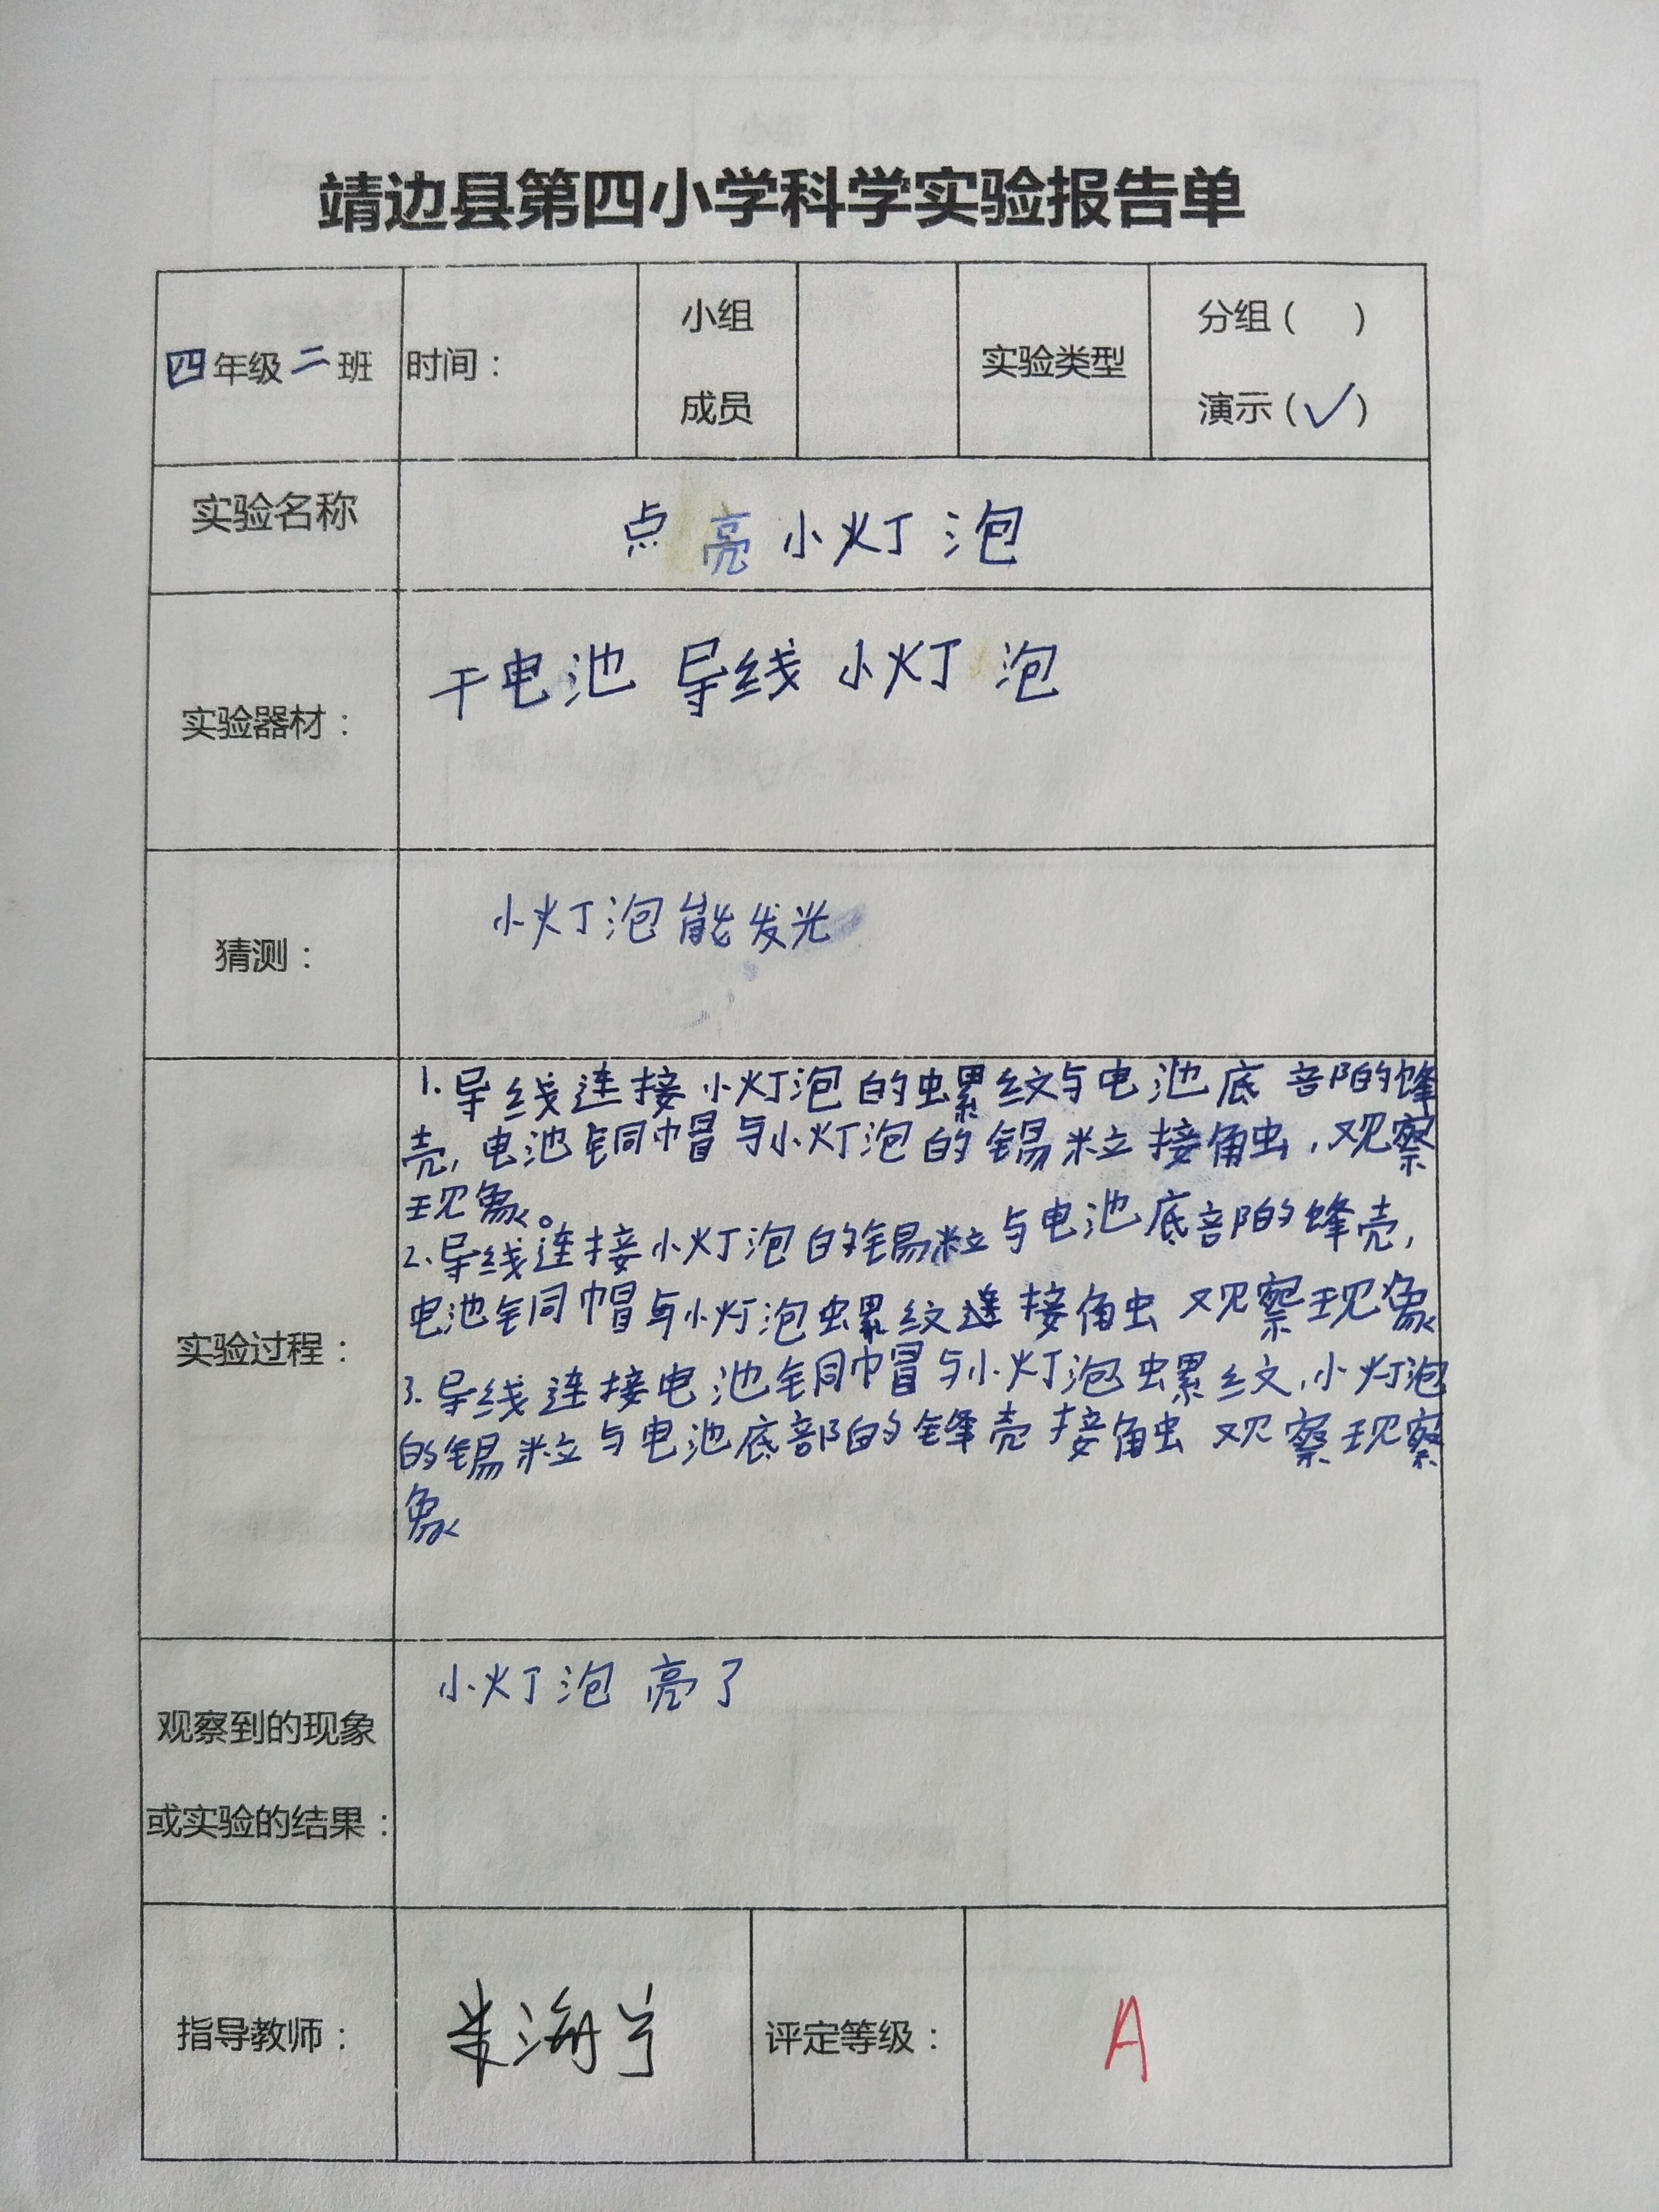 靖边县第四小学科学实验报告单
四年级二班
时间：
小组
成员
实验类型
分组（ ）
演示（✓）
实验名称
点亮小灯泡
实验器材：
干电池 导线 小灯泡
猜测：
小灯泡能发光
实验过程：
1.导线连接小灯泡的螺纹与电池底部的蜂
壳,电池铜帽与小灯泡的锡粒接触,观察
现象。
2.导线连接小灯泡的锡粒与电池底部的蜂壳,
电池铜帽与小灯泡螺纹连接触 观察现象
3.导线连接电池铜帽与小灯泡螺纹,小灯泡
的锡粒与电池底部的锋壳接触 观察现察
象
观察到的现象
或实验的结果：
小灯泡亮了
指导教师：
评定等级：
A